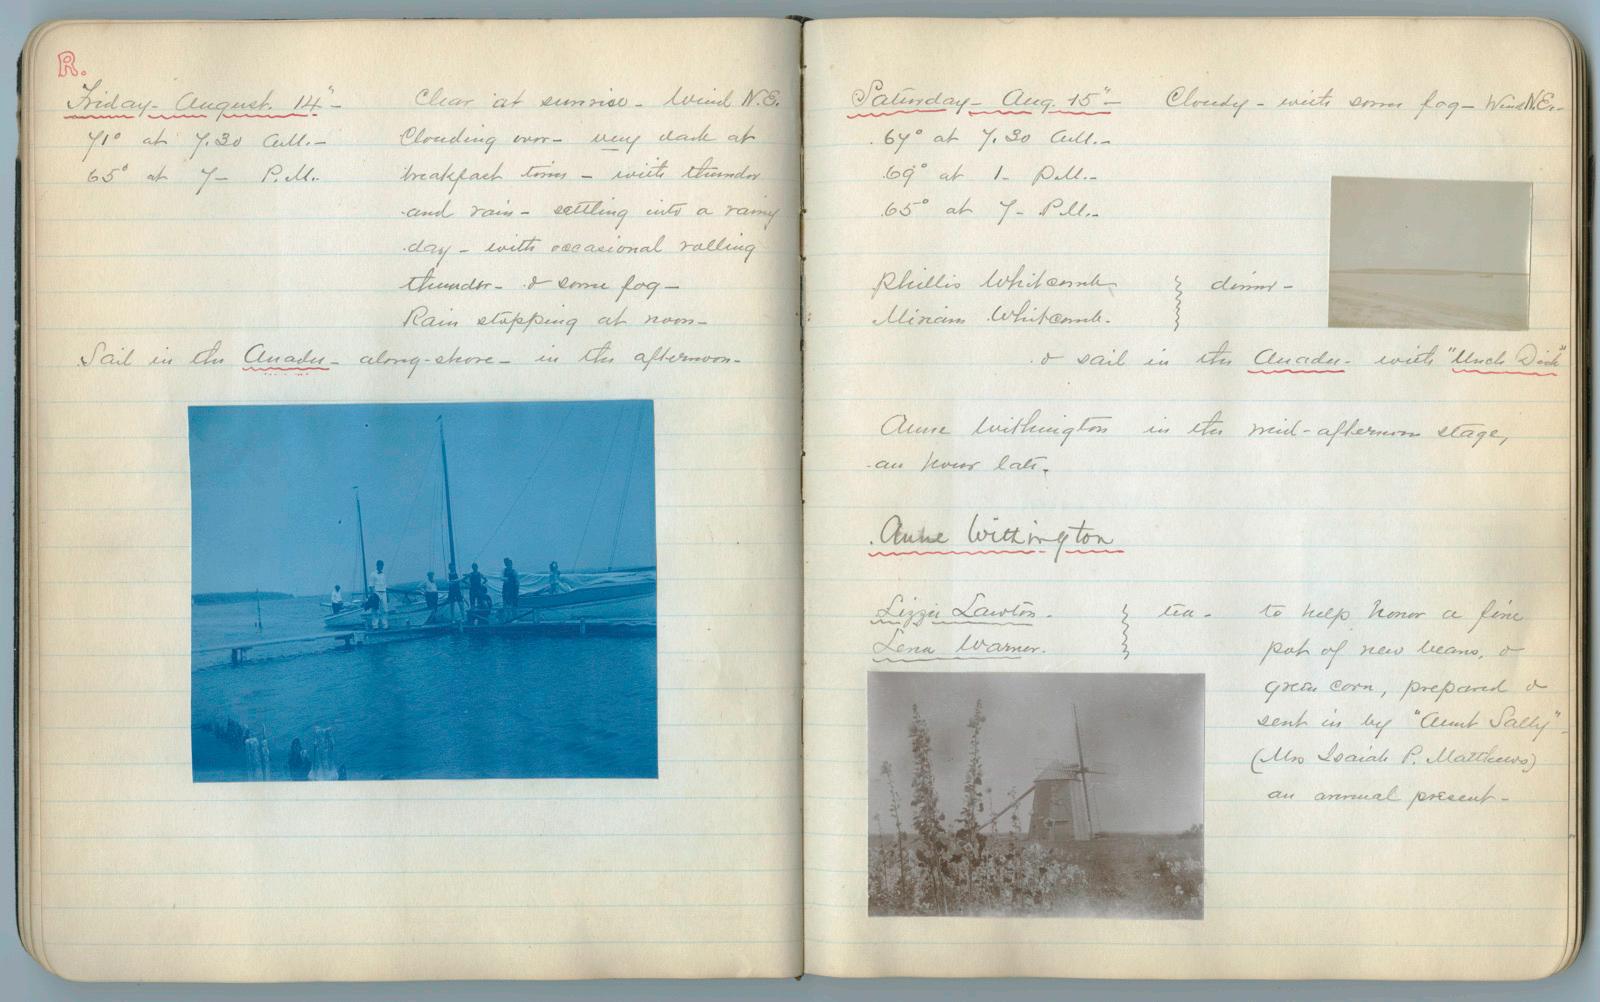 R.
Friday - August. 14" - Clear at sunrise - Wind N.E.
71° at 7.30 A.M. - Clouding over - very dark at
65° at 7 - P.M. breakfast time - with thunder
and rain - settling into a rainy
day - with occasional rolling
thunder - & some fog -
Rain stopping at noon -
Sail in the - along-shore - in the afternoon -
Saturday - Aug. 15" - Cloudy - with some fog - Wind N.E. -
67° at 7.30 A.M. -
69° at 1 - P.M. -
65° at 7 - P.M. -
Phillis Whitcomb
Miriam Whitcomb.
dinner -
& sail in the - with "Uncle Dick"
Anne Withington in the mid-afternoon stage,
an hour late.
Anne Withington
Lizzie Lawton.
Lena Warner.
tea -
to help honor a fine
pot of new beans, &
green corn, prepared &
sent in by "Aunt Sally" -
(Mrs Isaiah P. Matthews)
an annual present -